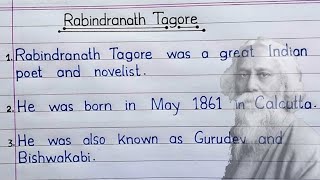 Rabindranath Tagore
1. Rabindranath Tagore was a great Indian
poet and novelist.
2. He was born in May 1861 in Calcutta.
3. He was also known as Gurudev and
Bishwakabi.